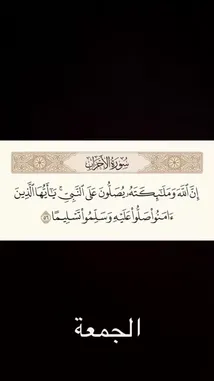 سُورَةُ الأَحْزَابِ
إِنَّ ٱللَّهَ وَمَلَٰٓئِكَتَهُۥ يُصَلُّونَ عَلَى ٱلنَّبِيِّۚ يَٰٓأَيُّهَا ٱلَّذِينَ
ءَامَنُوا۟ صَلُّوا۟ عَلَيْهِ وَسَلِّمُوا۟ تَسْلِيمًا ٥٦
الجمعة